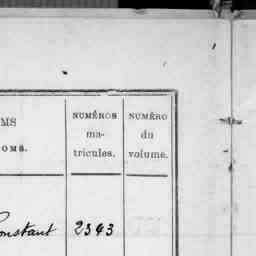 MS
OMS.
NUMÉROS
ma-
tricules.
NUMÉRO
du
volume.
Constant 2343